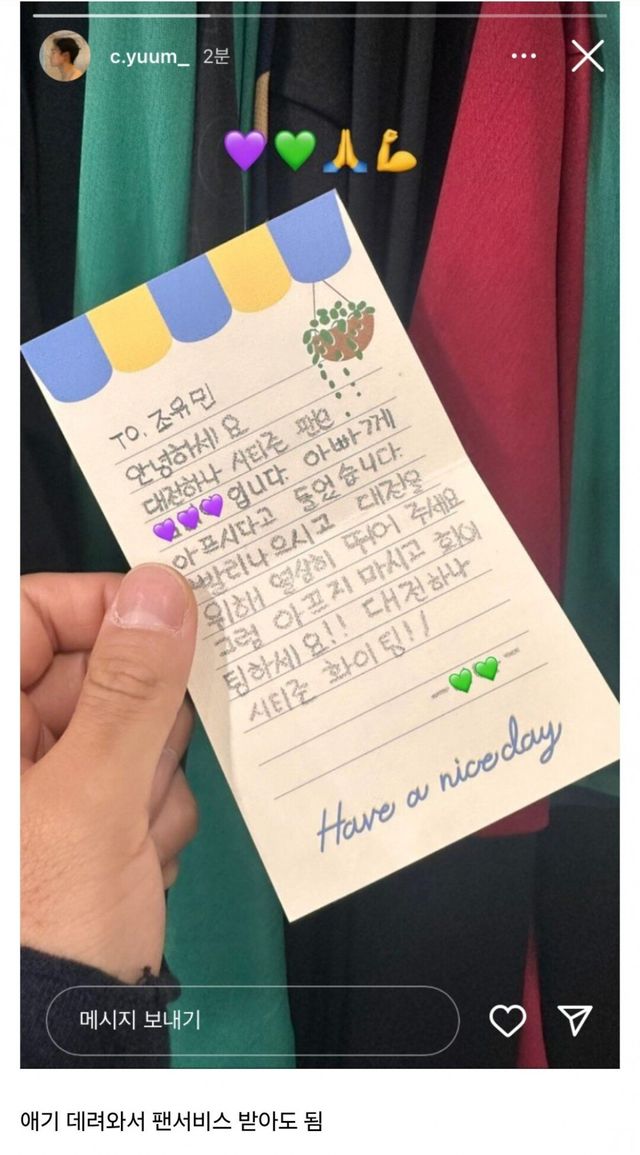 c.yuum_ 2분
TO. 조유민
안녕하세요
대전하나 시티즌 팬인
입니다. 아빠가께
아프시다고 들었습니다.
빨리나으시고 대전을
위해 열심히 뛰어 주세요
그럼 아프지 마시고 화이
팅하세요!! 대전하나
시티즌 화이팅!!
Have a nice day
메시지 보내기
애기 데려와서 팬서비스 받아도 됨